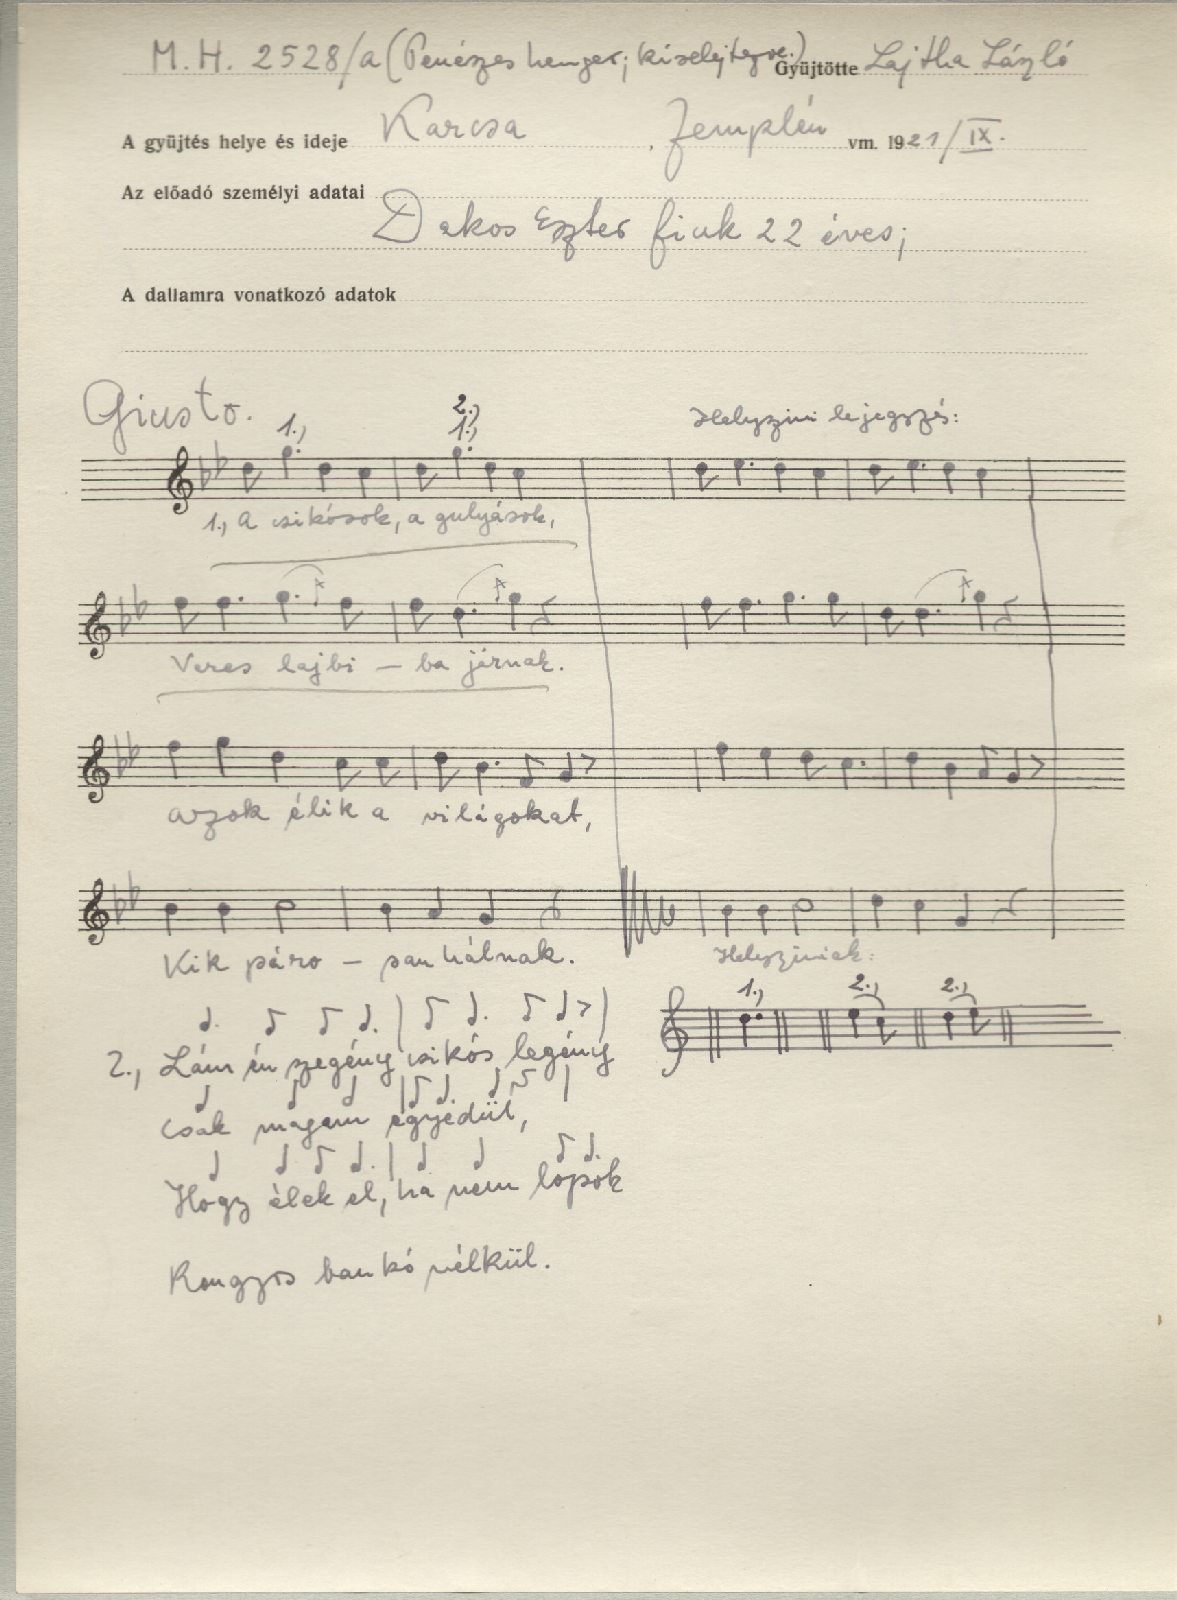 M. H. 2528/a (Penészes henger; kiselejtezve.) Gyűjtötte Lajtha László
A gyűjtés helye és ideje Karcsa, Zemplén vm. 1921/IX.
Az előadó személyi adatai
Dakos Eszter fiuk 22 éves;
A dallamra vonatkozó adatok
Giusto.
1., 2., 1., Helyszini lejegyzés:
1., A csikósok, a gulyások,
Veres lajbi – ba járnak.
azok élik a világokat,
Kik páro – san hálnak. Helyziniek:
1., 2., 2.,
2., Lám én szegény csikós legény
csak magam egyedül,
Hogy élek el, ha nem lopok
Rongyos bankó nélkül.